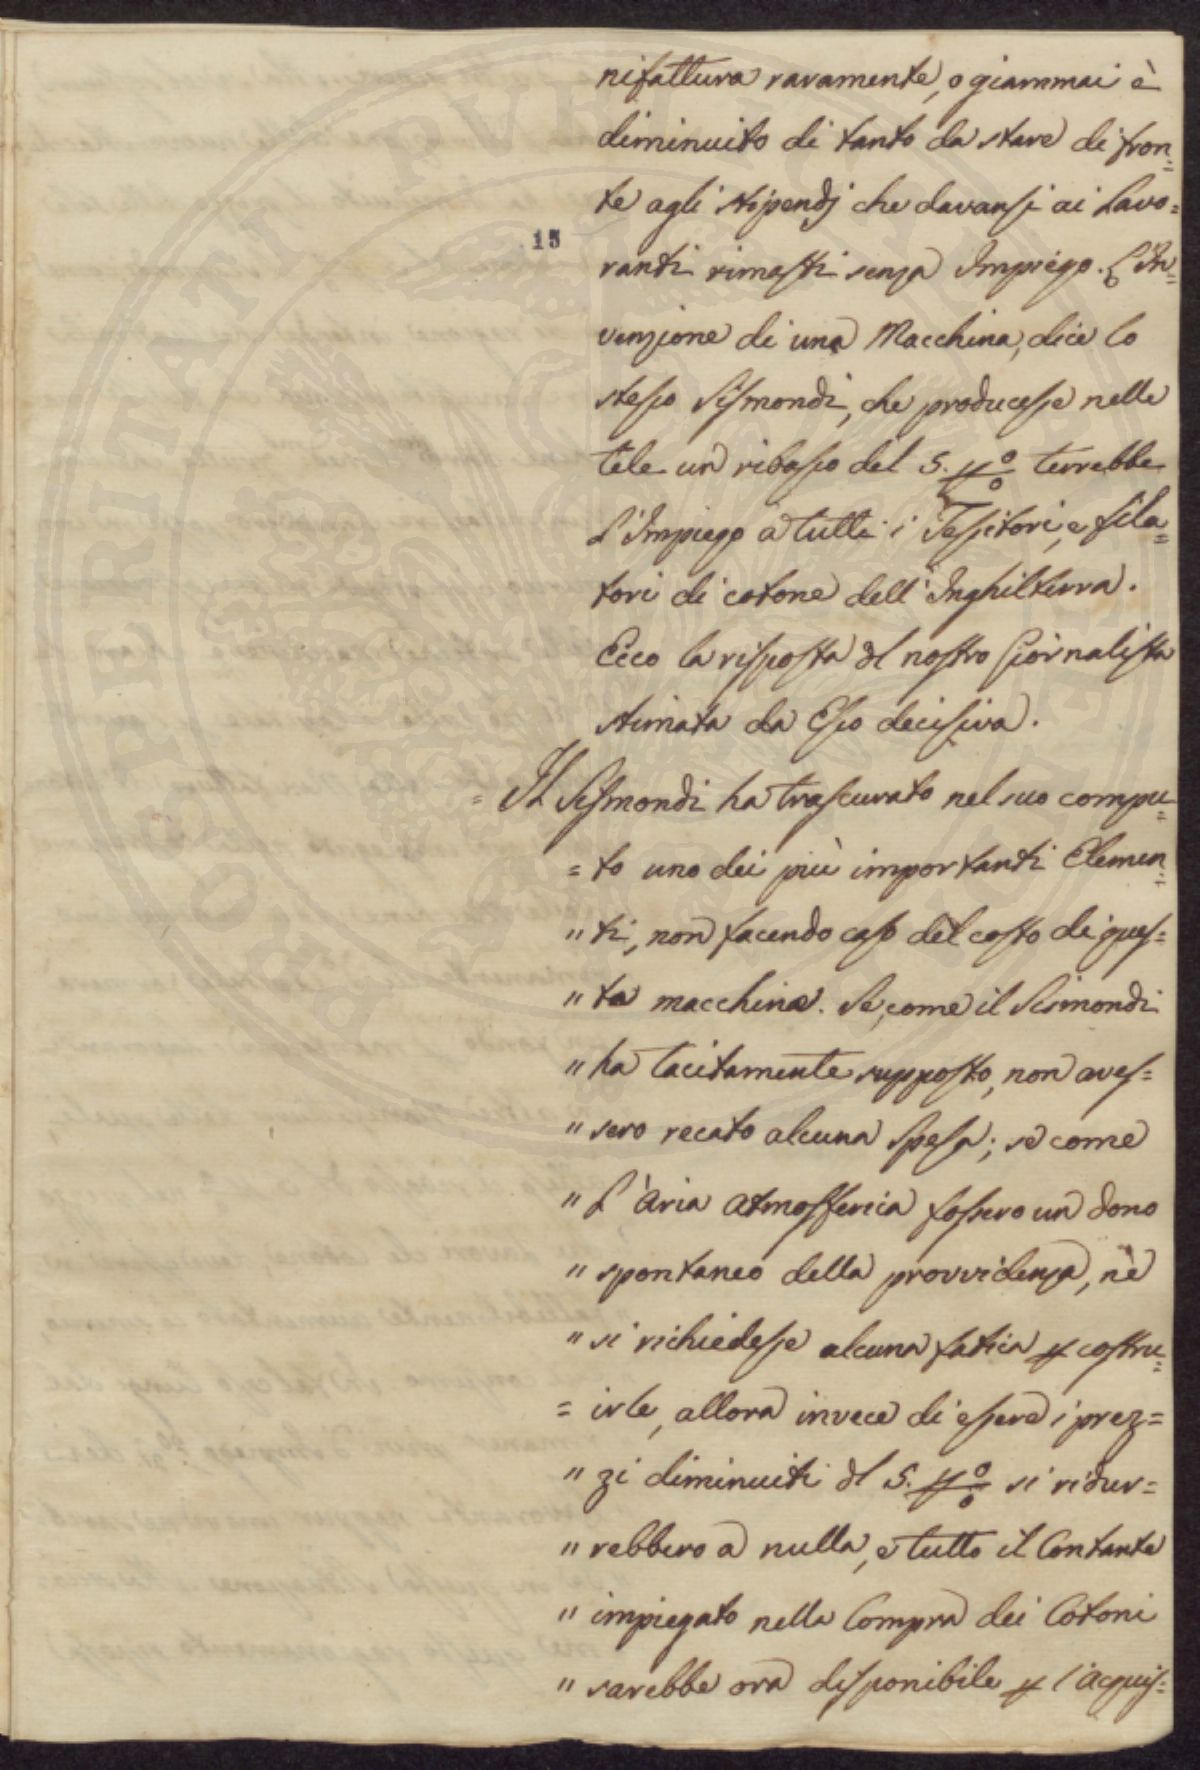 nifattura raramente, o giammai è
diminuito di tanto da stare di fron=
te agli stipendj che davansi ai Lavo=
15
ranti rimasti senza Impiego. L'In=
venzione di una Macchina, dice lo
stesso Sismondi, che producesse nelle
tele un ribasso del 5. p% terrebbe
L'Impiego a tutti i Tessitori, e fila=
tori di cotone dell'Inghilterra.
Ecco la risposta dl nostro Giornalista
stimata da Esso decisiva.
= Il Sismondi ha trascurato nel suo compu=
= to uno dei più importanti Elemen=
" ti, non facendo caso del costo di ques=
" ta macchina. Se, come il Sismondi
" ha tacitamente supposto, non aves=
" sero recato alcuna spesa; se come
" L'Aria atmosferica fossero un dono
" spontaneo della provvidenza, nè
" si richiedesse alcuna fatica p costru=
= irle, allora invece di essere i prez=
" zi diminuiti dl 5. p% si ridur=
" rebbero a nulla, e tutto il Contante
" impiegato nella Compra dei Cotoni
" sarebbe ora disponibile p l'acquis=
PROSPERITATI PVBLICAE